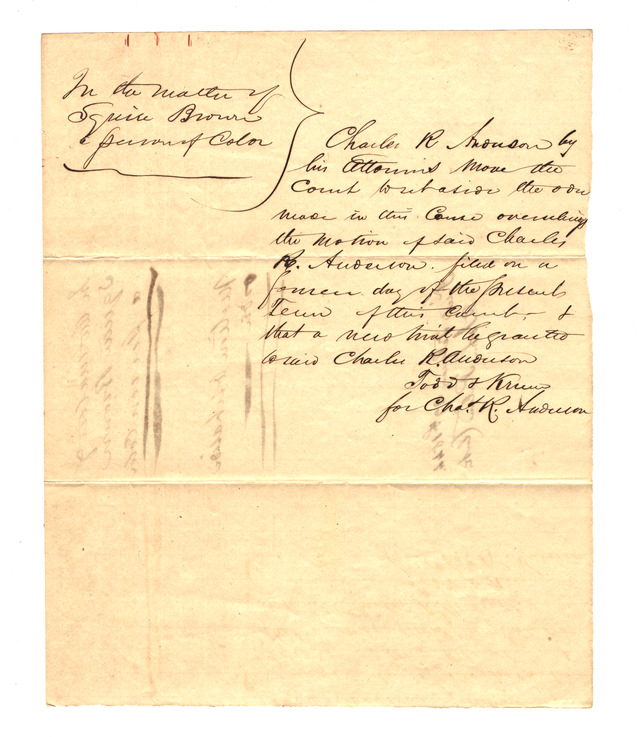 In the matter of
Squire Brown
a person of Color
Charles R Anderson by
his Attornies move the
Court to set aside the order
made in this Cause overruling
the motion of said Charles
R. Anderson filed on a
former day of the present
Term of this court, &
that a new trial be granted
to said Charles R. Anderson
Todd & Krum
for Chas. R. Anderson